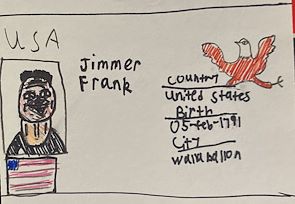 USA
Jimmer
Frank
country
United states
Birth
05-feb-1791
City